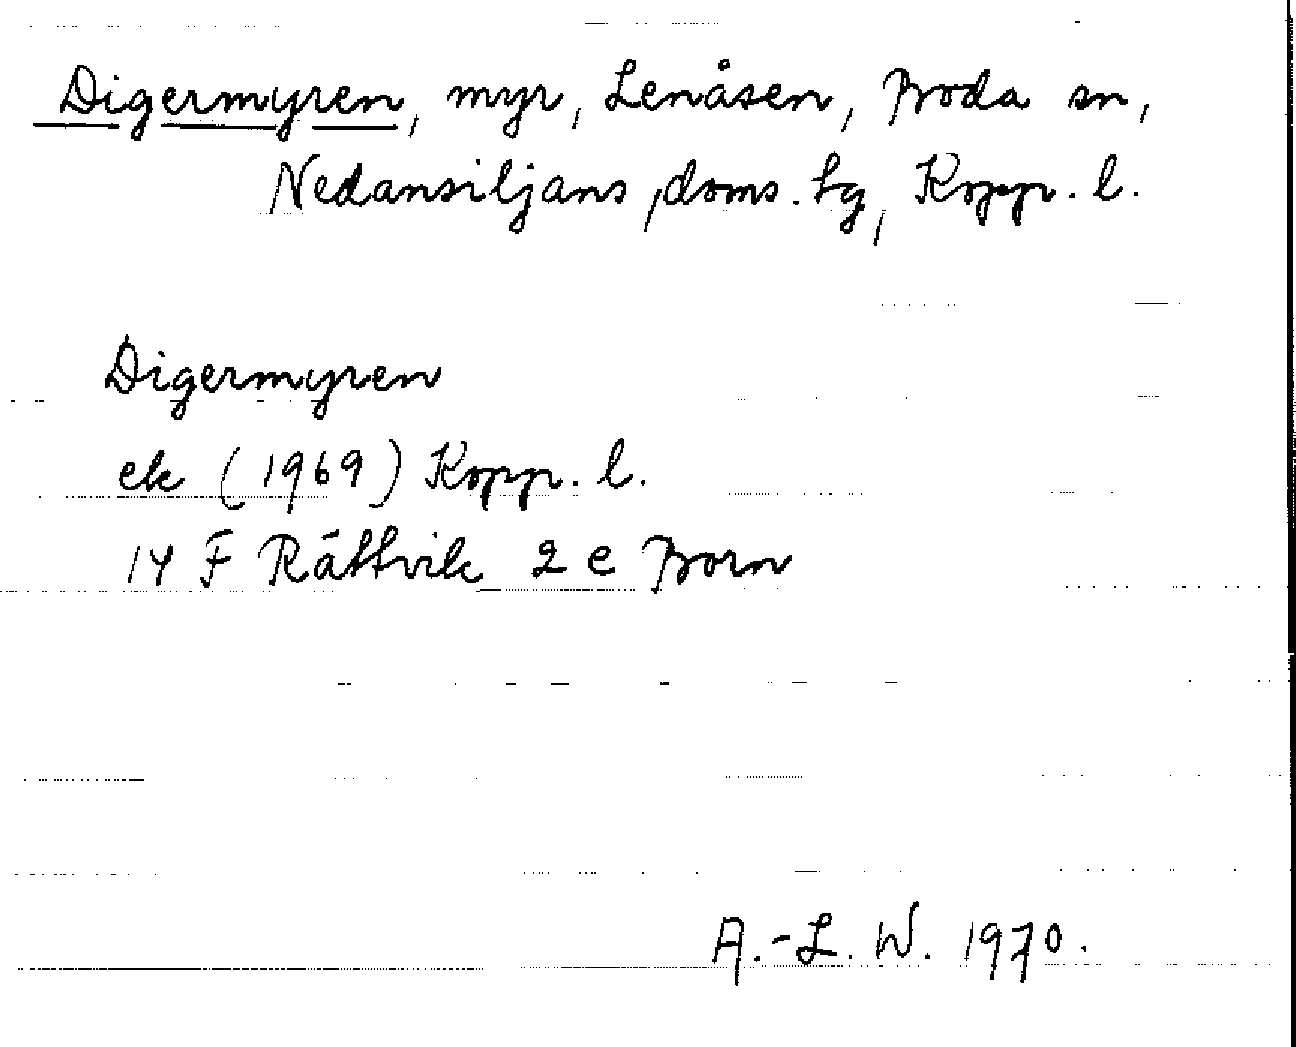 Digermyren, myr, Lenåsen, Boda sn,
Nedansiljans doms. tg, Kopp. l.
Digermyren
ek (1969) Kopp. l.
14 F Rättvik 2 e Born
A.-L. W. 1970.